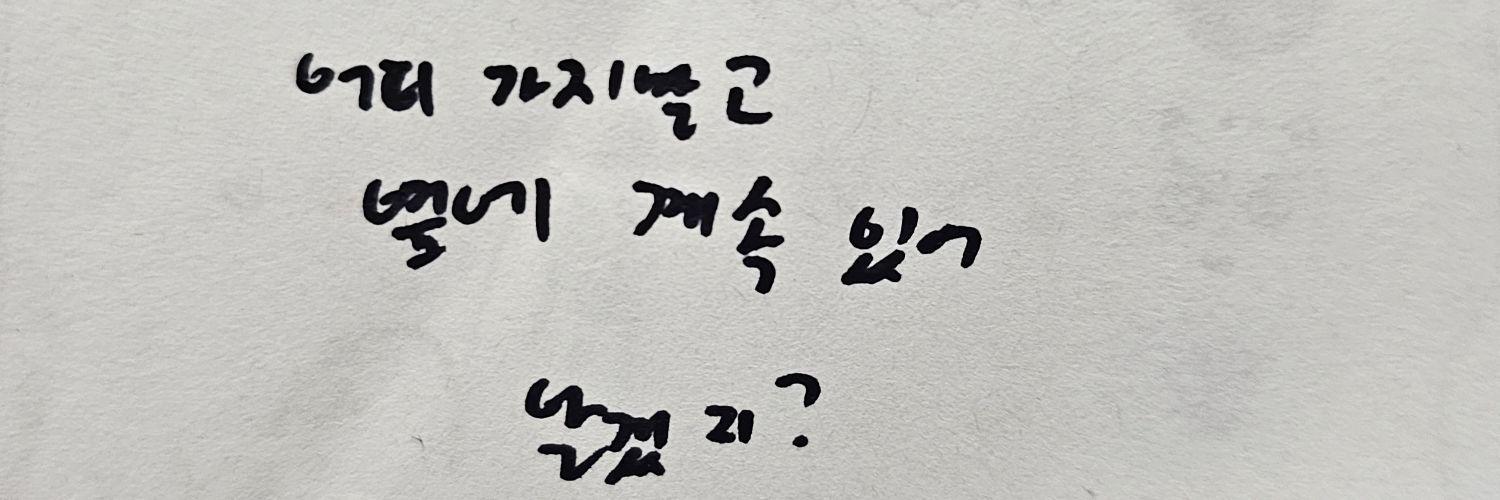 어디 가지말고
옆에 계속 있어
알겠지?